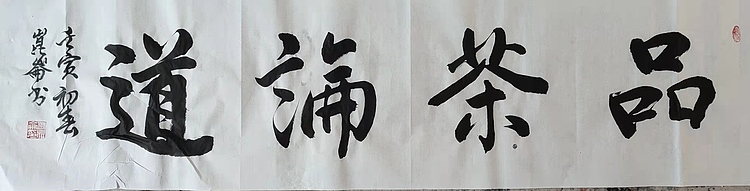 品茶論道
壬寅初春
崑崙書